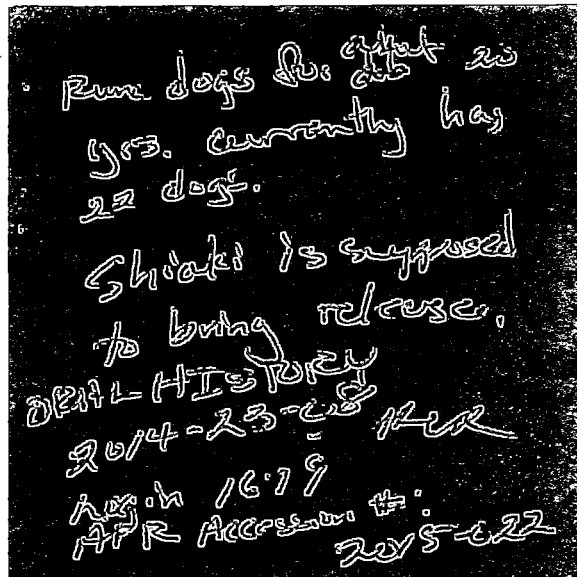 Runs dogs for about 20
yrs. currently has
22 dogs.
Shiaki is supposed
to bring release.
ORAL HISTORY
2014-23-08
16:19
APR Accession #:
2015-022